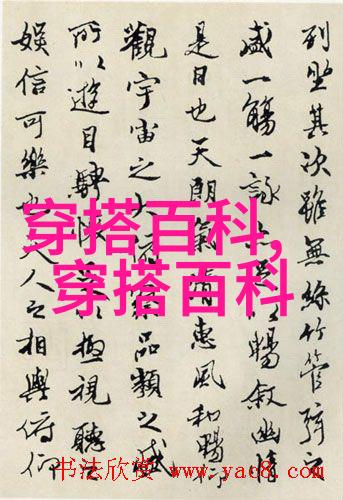 列坐其次雖無絲竹管弦之
盛一觴一詠亦足以暢敘幽情
是日也天朗氣清惠風和暢仰
觀宇宙之大俯察品類之盛
所以遊目騁懷足以極視聽之
娛信可樂也夫人之相與俯仰
穿搭百科,
穿搭百科
书法欣赏 www.yac8.com